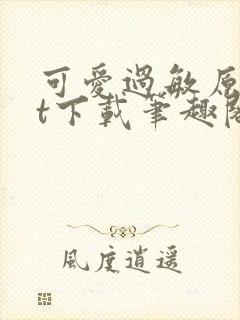 可愛過敏原
t下載筆趣閣
風度逍遥